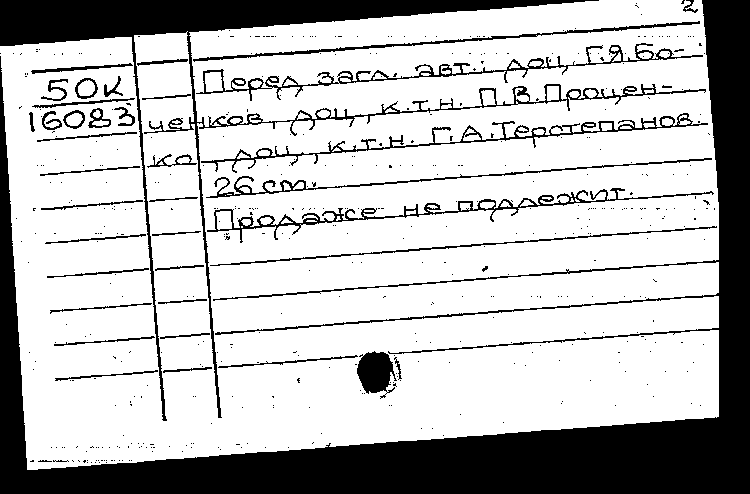 2
50К Перед загл. авт.: доц. Г.Я.Бо-
16083 ченков, доц., к.т.н. П.В.Процен-
ко, доц., к.т.н. Г.А.Терстепанов.
26 cm.
Продаже не подлежит.